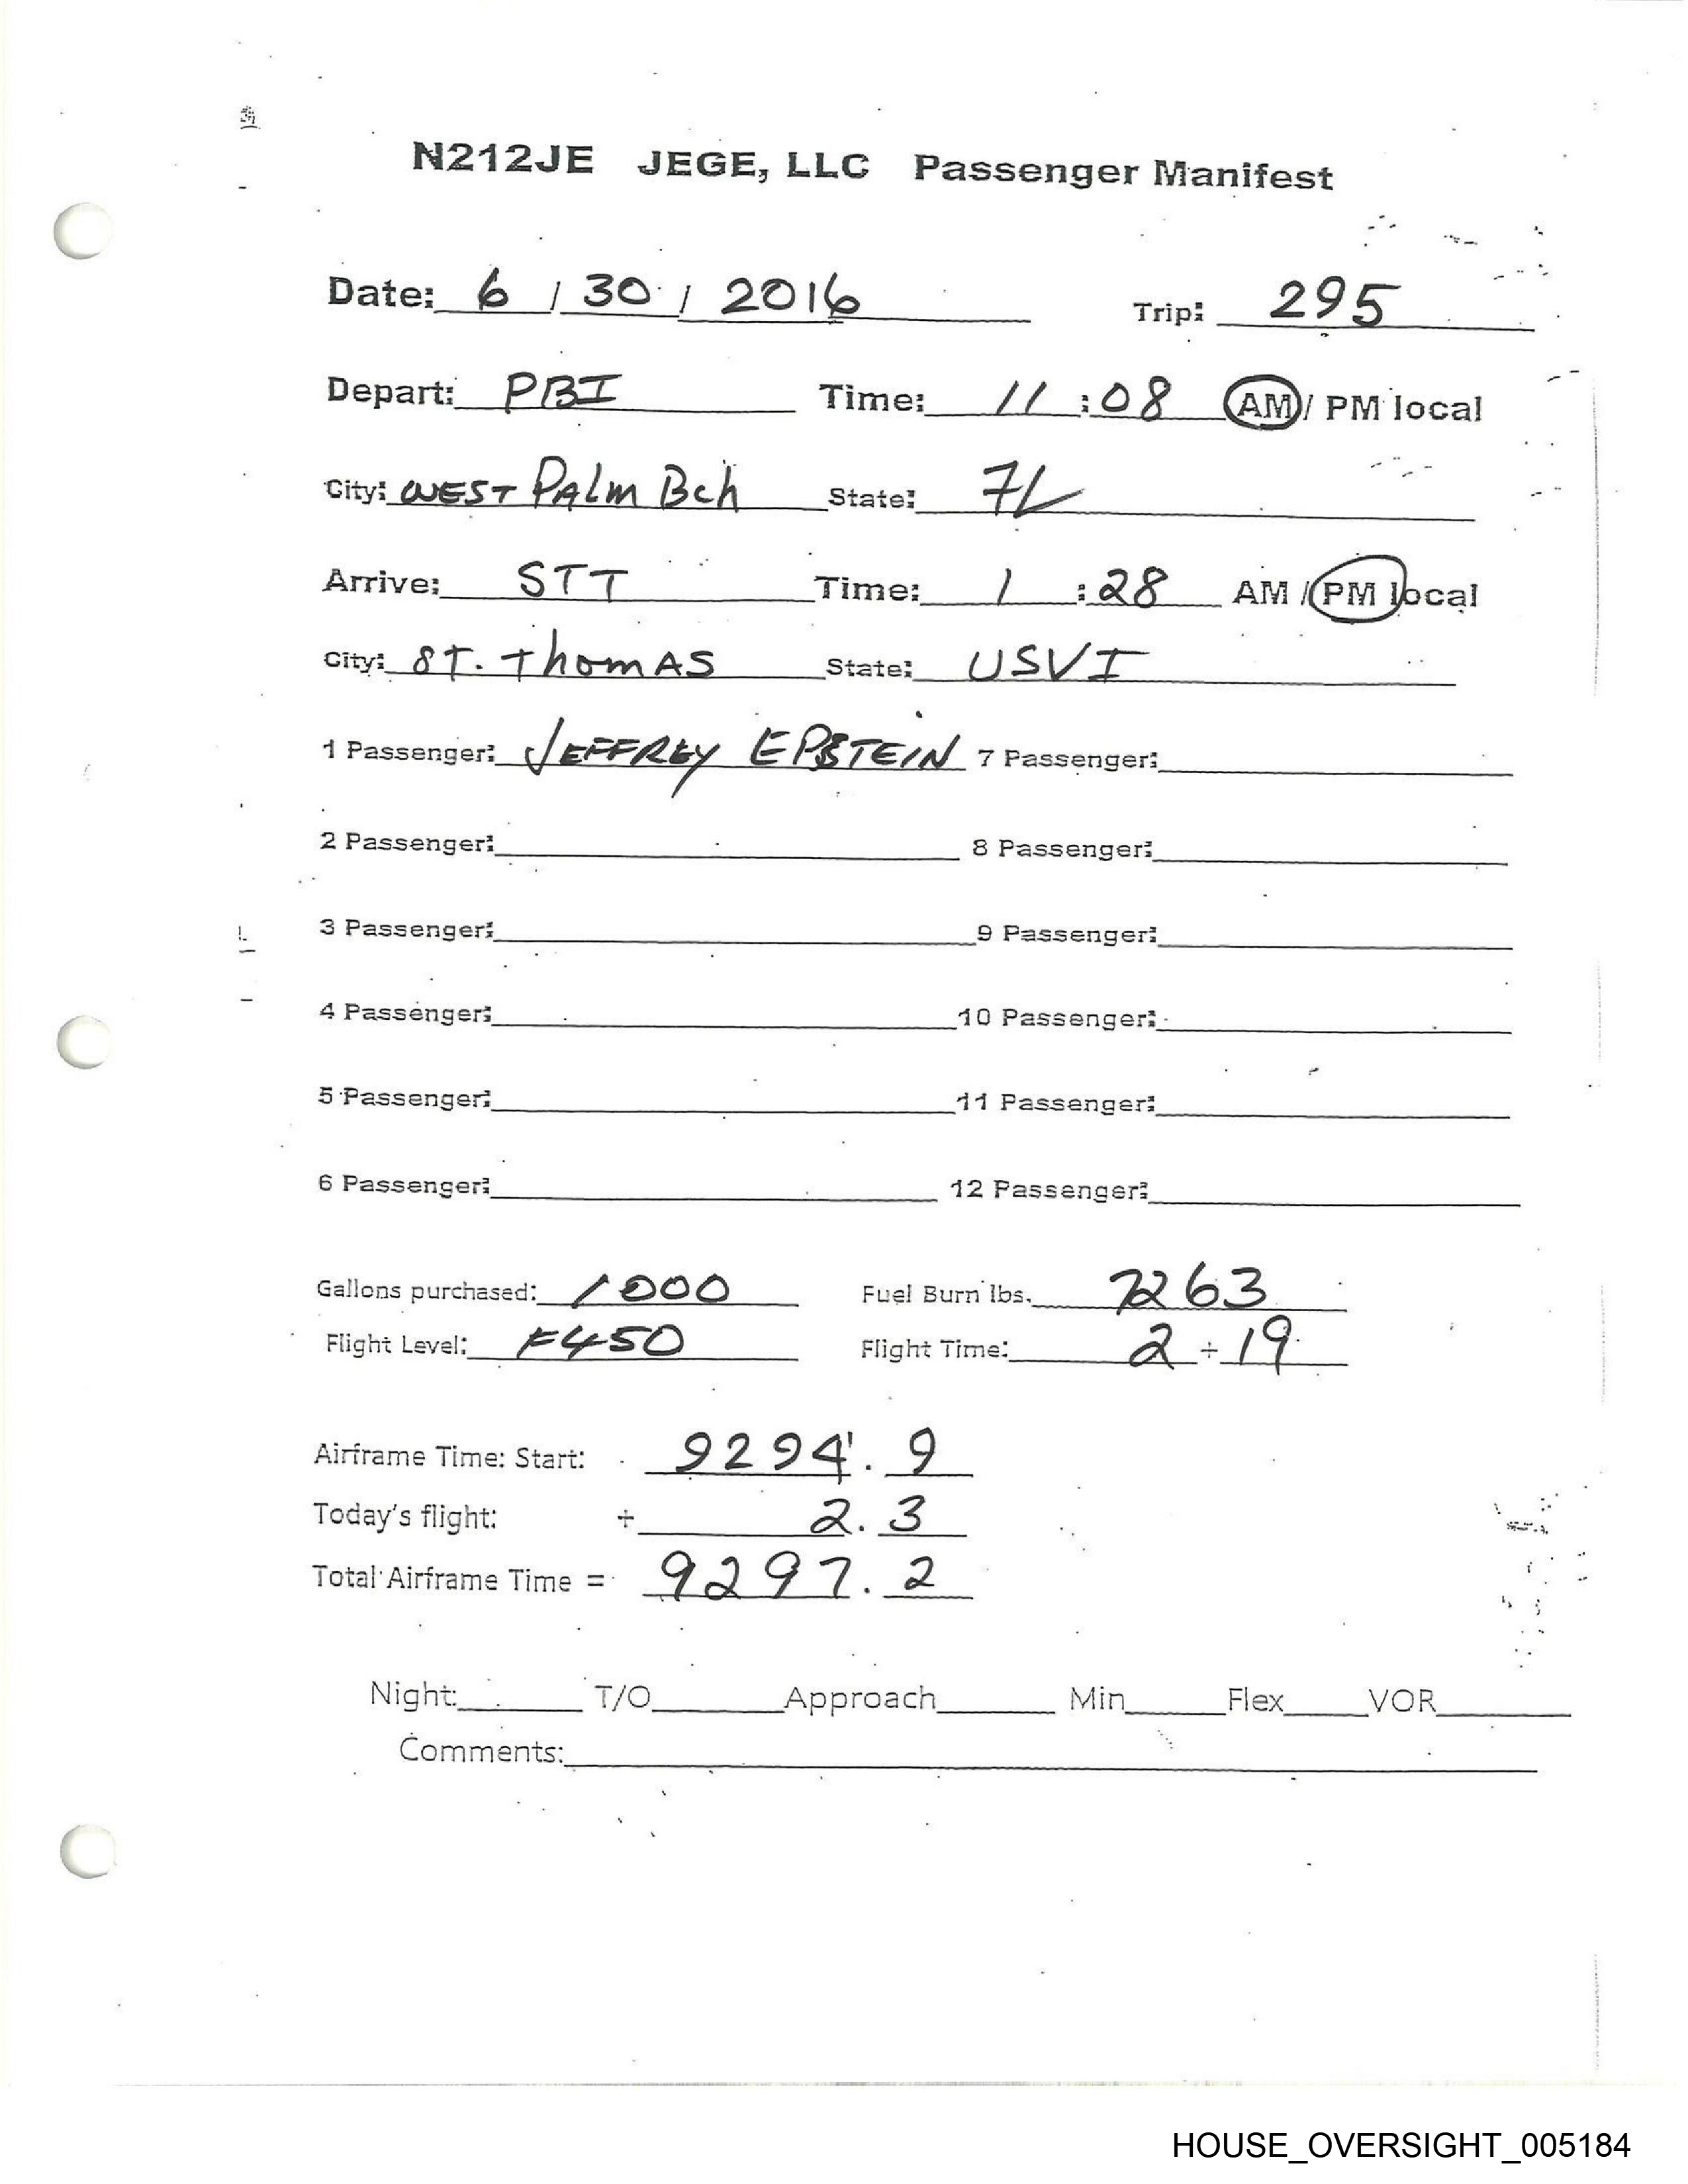 N212JE JEGE, LLC Passenger Manifest
Date: 6 / 30 / 2016 Trip: 295
Depart: PBI Time: 11 : 08 AM / PM local
City: WEST PALm Bch State: FL
Arrive: STT Time: 1 : 28 AM / PM local
City: ST. ThomAS State: USVI
1 Passenger: JEFFREY EPSTEIN 7 Passenger:
2 Passenger: 8 Passenger:
3 Passenger: 9 Passenger:
4 Passenger: 10 Passenger:
5 Passenger: 11 Passenger:
6 Passenger: 12 Passenger:
Gallons purchased: 1000 Fuel Burn lbs. 7263
Flight Level: F450 Flight Time: 2 + 19
Airframe Time: Start: 9294 . 9
Today's flight: + 2 . 3
Total Airframe Time = 9297 . 2
Night: T/O Approach Min Flex VOR
Comments:
HOUSE_OVERSIGHT_005184